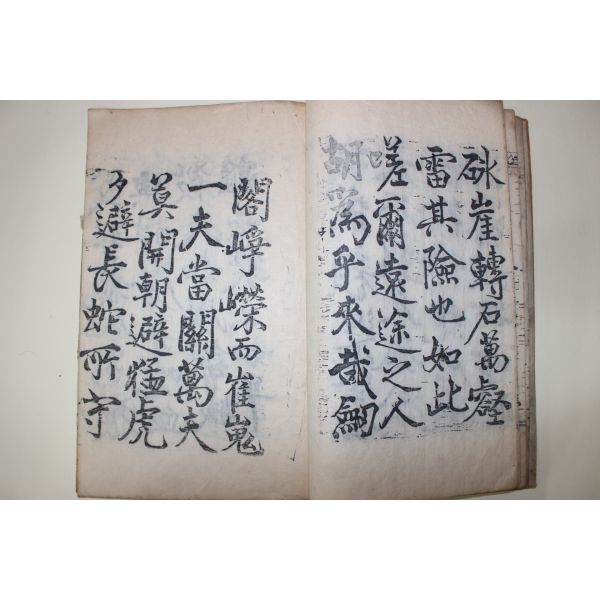 砅崖轉石萬壑
雷其險也如此
嗟爾遠途之人
胡爲乎來哉劒
閣崢嶸而崔嵬
一夫當關萬夫
莫開朝避猛虎
夕避長蛇所守